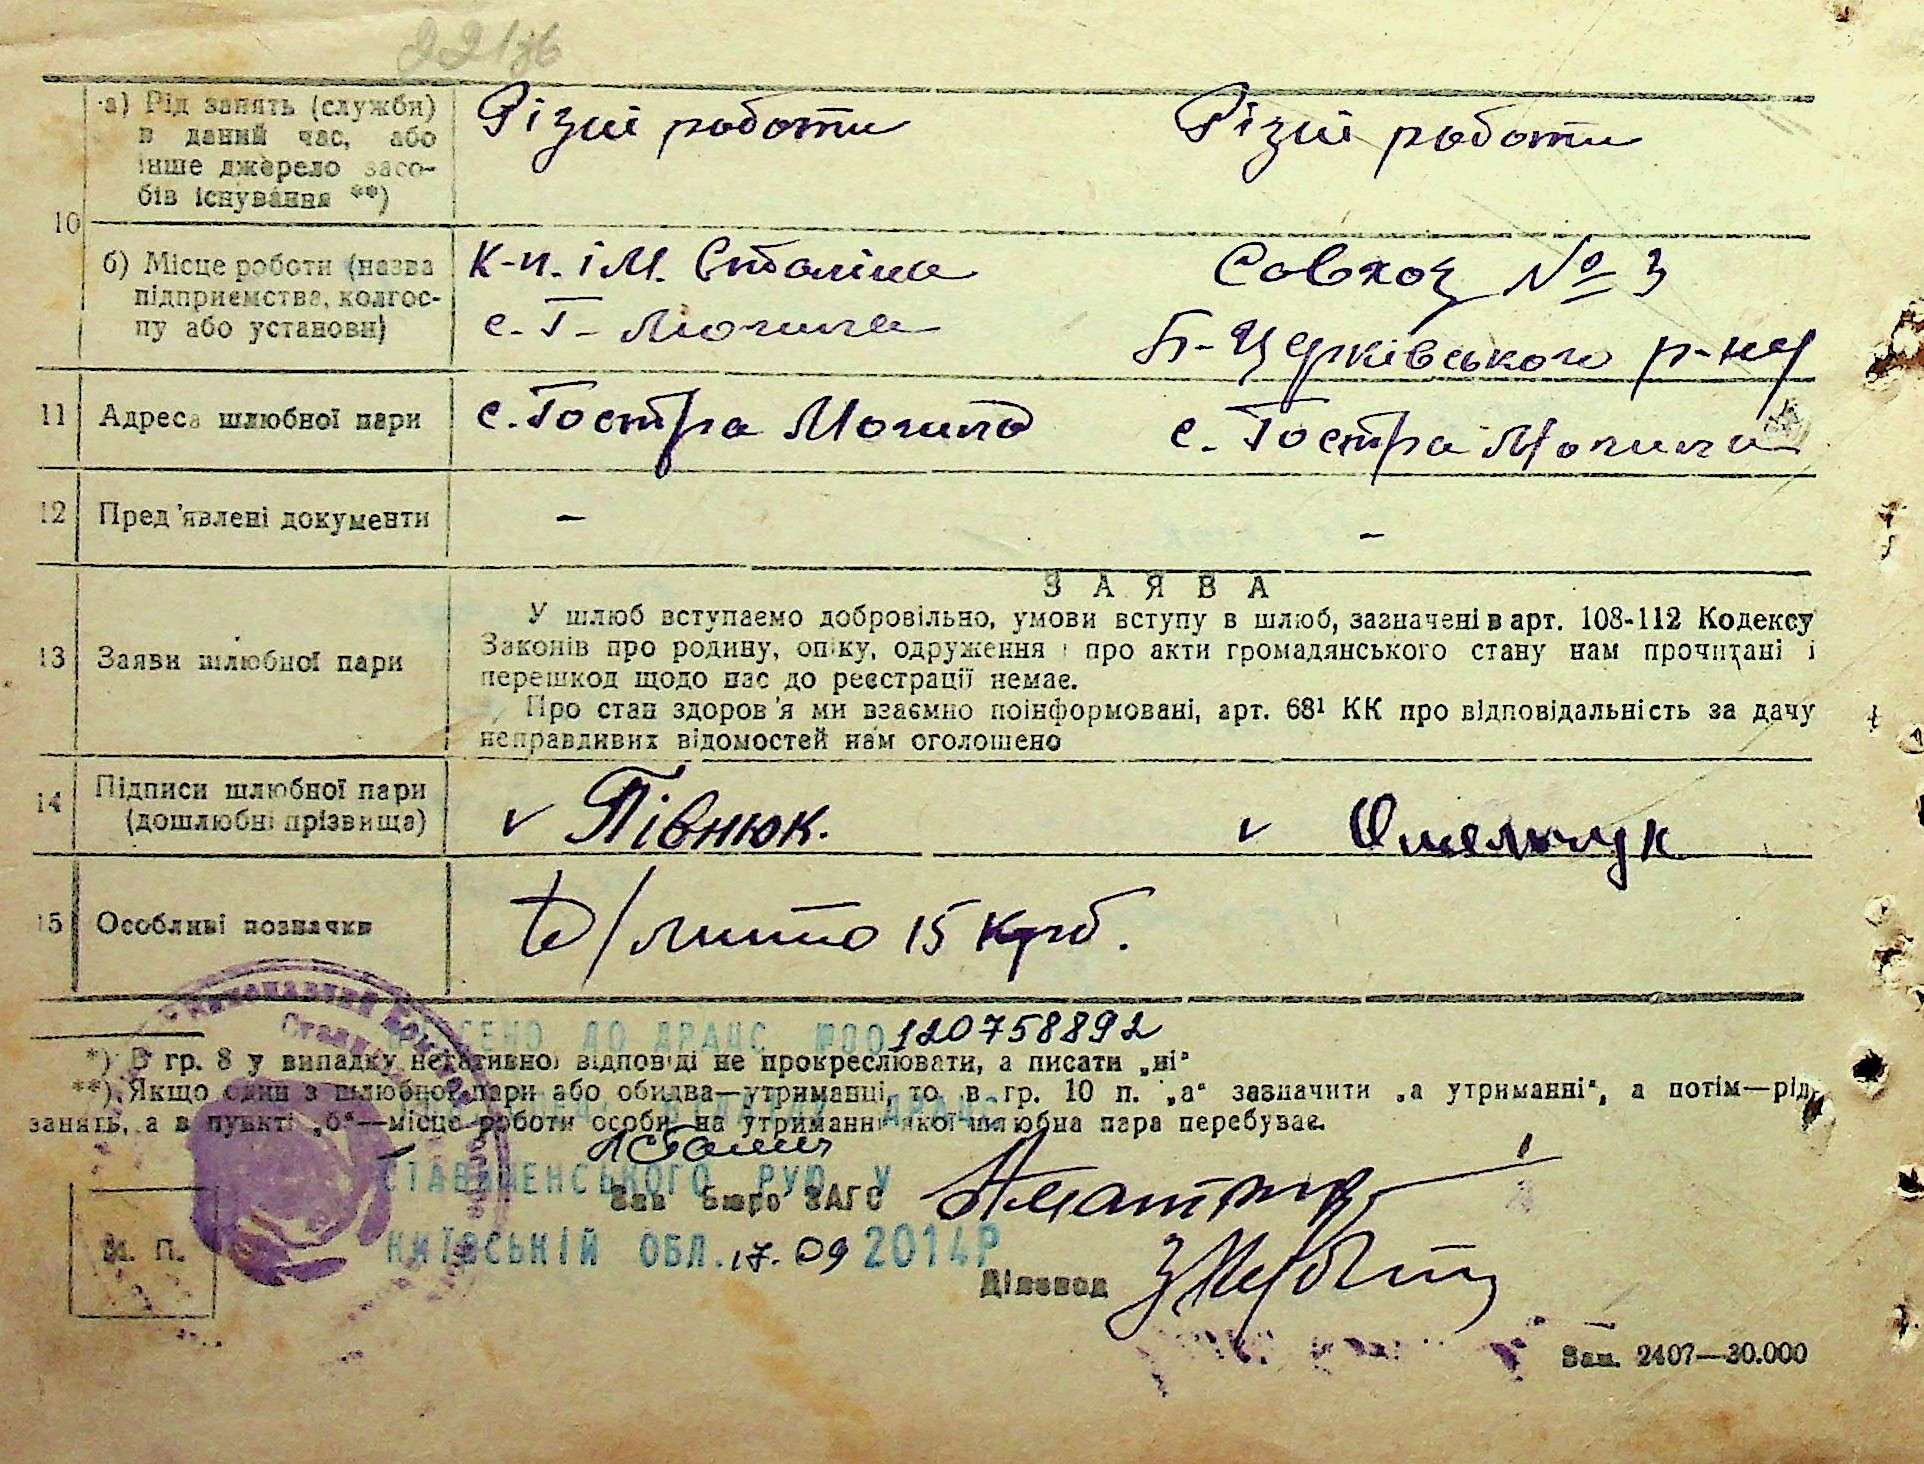 а) Рід занять (служби) в даний час, або інше джерело засобів існування **)
Різні роботи
Різні роботи
10
б) Місце роботи (назва підприємства, колгоспу або установи)
К-п. ім. Сталіна
с. Г-Могила
Совхоз № 3
Б-Церківського р-ну
11 Адреса шлюбної пари
с. Гостра Могила
с. Гостра Могила
12 Пред'явлені документи
–
–
13 Заяви шлюбної пари
ЗАЯВА
У шлюб вступаємо добровільно, умови вступу в шлюб, зазначені в арт. 108-112 Кодексу
Законів про родину, опіку, одруження і про акти громадянського стану нам прочитані і
перешкод щодо нас до реєстрації немає.
Про стан здоров'я ми взаємно поінформовані, арт. 68¹ КК про відповідальність за дачу
неправдивих відомостей нам оголошено
14 Підписи шлюбної пари (дошлюбні прізвища)
v Півнюк.
v Омельчук
15 Особливі позначки
мито 15 крб.
ДО ДРАЦС №00120758892
*) В гр. 8 у випадку негативної відповіді не прокреслювати, а писати „ні“
**) Якщо один з шлюбної пари або обидва—утриманці, то в гр. 10 п. „а“ зазначити „а утриманні“, а потім—рід
занять, а в пункті „б“—місце роботи особи, на утриманні якої шлюбна пара перебуває.
СТАВИЩЕНСЬКОГО РУЮ У
Зав Бюро ЗАГС
М. П.
КИЇВСЬКІЙ ОБЛ. 17.09 2014Р
Діловод
Зам. 2407—30.000